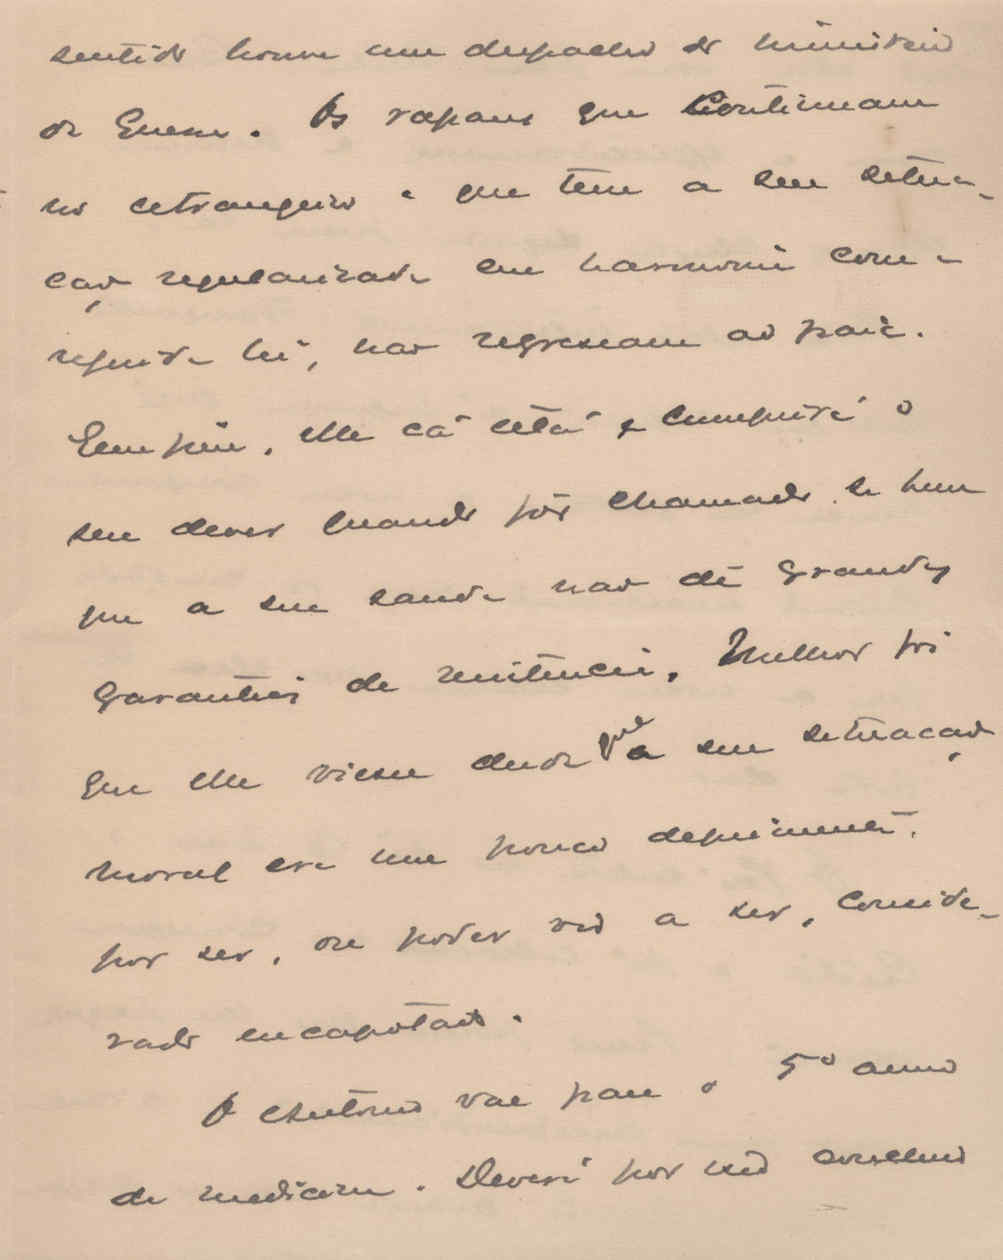 sentido houve um despacho do ministerio
da Guerra. Os rapazes que continuam
no estrangeiro e que tem a sua situa-
ção regularizada em harmonia com a
lei, não regressam ao paiz.
Emfim, elle cá está e cumprirá o
seu dever quando fôr chamado se bem
que a sua saude não dê grandes
garantias de resistencia. Melhor foi
que elle viesse desde que a sua situação
moral era um pouco deprimente,
por ser, ou poder vir a ser, conside-
rado encapotado.
O Antonio vae para o 5º anno
de medicina. Deverá por isso